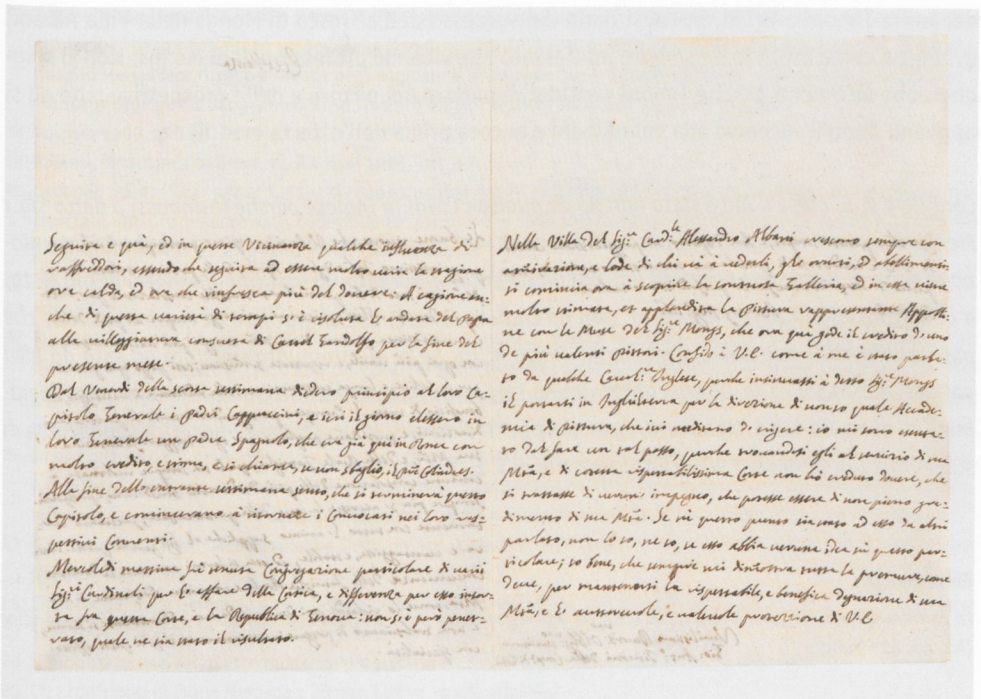 Seguita è quà, ed in queste Vicinanze qualche influenza di
raffreddori, essendo che seguita ad essere molto varia la stagione
ora calda, ed ora che rinfresca più del dovere: A cagione an=
che di questa varietà di tempi s'è risoluta l'andata del Papa
alla villeggiatura consueta di Castel Gandolfo per la fine del
presente mese.
Dal Venerdì della scorsa settimana diedero principio al loro Ca=
pitolo Generale i Padri Cappuccini, e il giorno elessero in
loro Generale un Padre Spagnolo, che era già quì in Roma con
molto credito, e stima, e si chiama, se non sbaglio, il
Alla fine della corrente settimana sento, che si terminerà questo
Capitolo, e cominceranno à ritornare i Convocati nei loro res=
pettivi Conventi.
Mercoledì mattina fù tenuta Congregazione particolare di varij
Sig.ri Cardinali per l'affare della Corsica, e differenza per esso insor=
ta fra questa Corte, e la Republica di Genova: non si è però pene=
trato, quale ne sia stato il risultato.
Nella Villa del Sig.r Card.le Alessandro Albani crescono sempre con
ammirazione, e lode di chi và à vederli, gli ornati, ed abellimenti:
si comincia ora à scoprire la contrusta Galleria, ed in essa viene
molto stimata, et applaudita la Pittura rappresentante Appolli=
ne con le Muse del Sig.r Mongs, che ora quà gode il credito d'uno
de più valenti Pittori. Confido à V.E. come à me è stato parla=
to da qualche Caval.re Inglese, perche insinuassi à detto Sig.r Mongs
il portarsi in Inghilterra per la direzione di non so quale Accade=
mia di Pittura, che ivi meditano d'erigere: io mi sono astenu=
to dal fare un tal passo, perche trovandosi egli al servizio di sua
Mtà, e di cotesta rispettabilissima Corte non hò creduto dovere, che
si trattasse di veruno impegno, che potesse essere di non pieno gra=
dimento di sua Mtà. Se sù questo punto sia stato ad esso da altri
parlato, non lo so, ne so, se esso abbia veruna idea sù questo par=
ticolare; so bene, che sempre mi dimostra tutta la premura, come
deve, per mantenersi la rispettabile, e benefica di sua
Mtà, e l'autorevole, e valevole protezione di V.E.